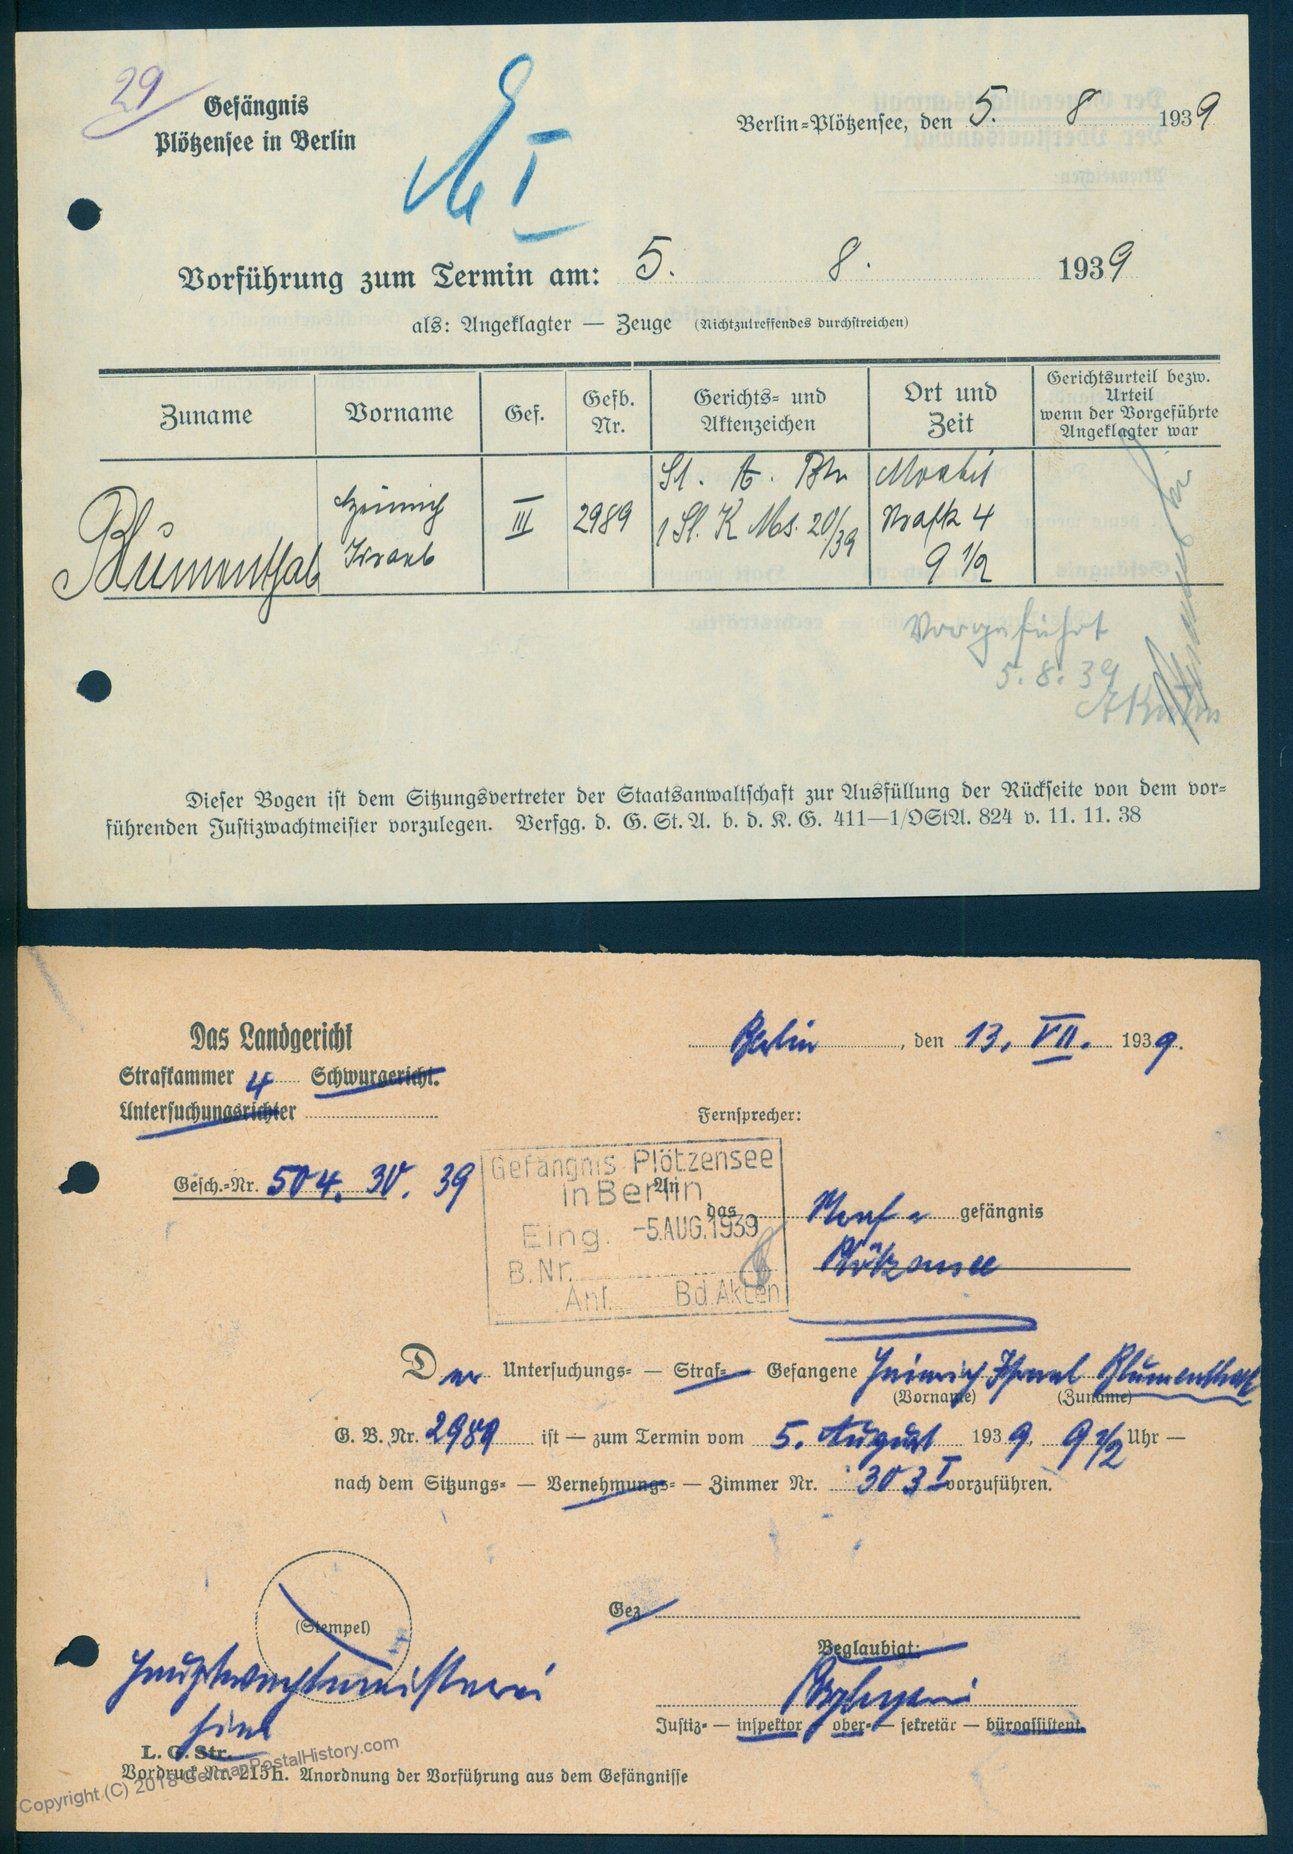 29
Gefängnis
Plötzensee in Berlin
I
Berlin-Plötzensee, den 5. 8 1939
Vorführung zum Termin am: 5. 8. 1939
als: Angeklagter — Zeuge (Nichtzutreffendes durchstreichen)
Zuname Vorname Gef. Gefb. Nr. Gerichts- und Aktenzeichen Ort und Zeit Gerichtsurteil bezw. Urteil wenn der Vorgeführte Angeklagter war
Blumenthal Heinrich Israel III 2989 St. A. Bln 1 St. K Ms. 20/39 Moabit Strafk 4 9 1/2
Vorgeführt
5. 8. 39
Dieser Bogen ist dem Sitzungsvertreter der Staatsanwaltschaft zur Ausfüllung der Rückseite von dem vor-
führenden Justizwachtmeister vorzulegen. Verfgg. d. G. St. A. b. d. K. G. 411—1/OStA. 824 v. 11. 11. 38
Das Landgericht
Strafkammer 4 Schwurgericht.
Untersuchungsrichter
Berlin, den 13. VII. 1939.
Fernsprecher:
Gesch.-Nr. 504. 30. 39
Gefängnis Plötzensee
in Berlin
Eing. -5. AUG. 1939
B. Nr.
Anl. Bd. Akten
An
das Straf- gefängnis
Plötzensee
Der Untersuchungs- — Straf- — Gefangene Heinrich Israel Blumenthal
(Vorname) (Zuname)
G. B. Nr. 2989 ist — zum Termin vom 5. August 1939, 9 1/2 Uhr —
nach dem Sitzungs- — Vernehmungs- — Zimmer Nr. 303 I vorzuführen.
(Stempel)
Gez.
Beglaubigt:
Hauptwachtmeisterei
hier
Justiz- — inspektor — ober- — sekretär — büroassistent
L. G. Str.
Vordruck Nr. 215h. Anordnung der Vorführung aus dem Gefängnisse
Copyright (C) 2018 GermanPostalHistory.com